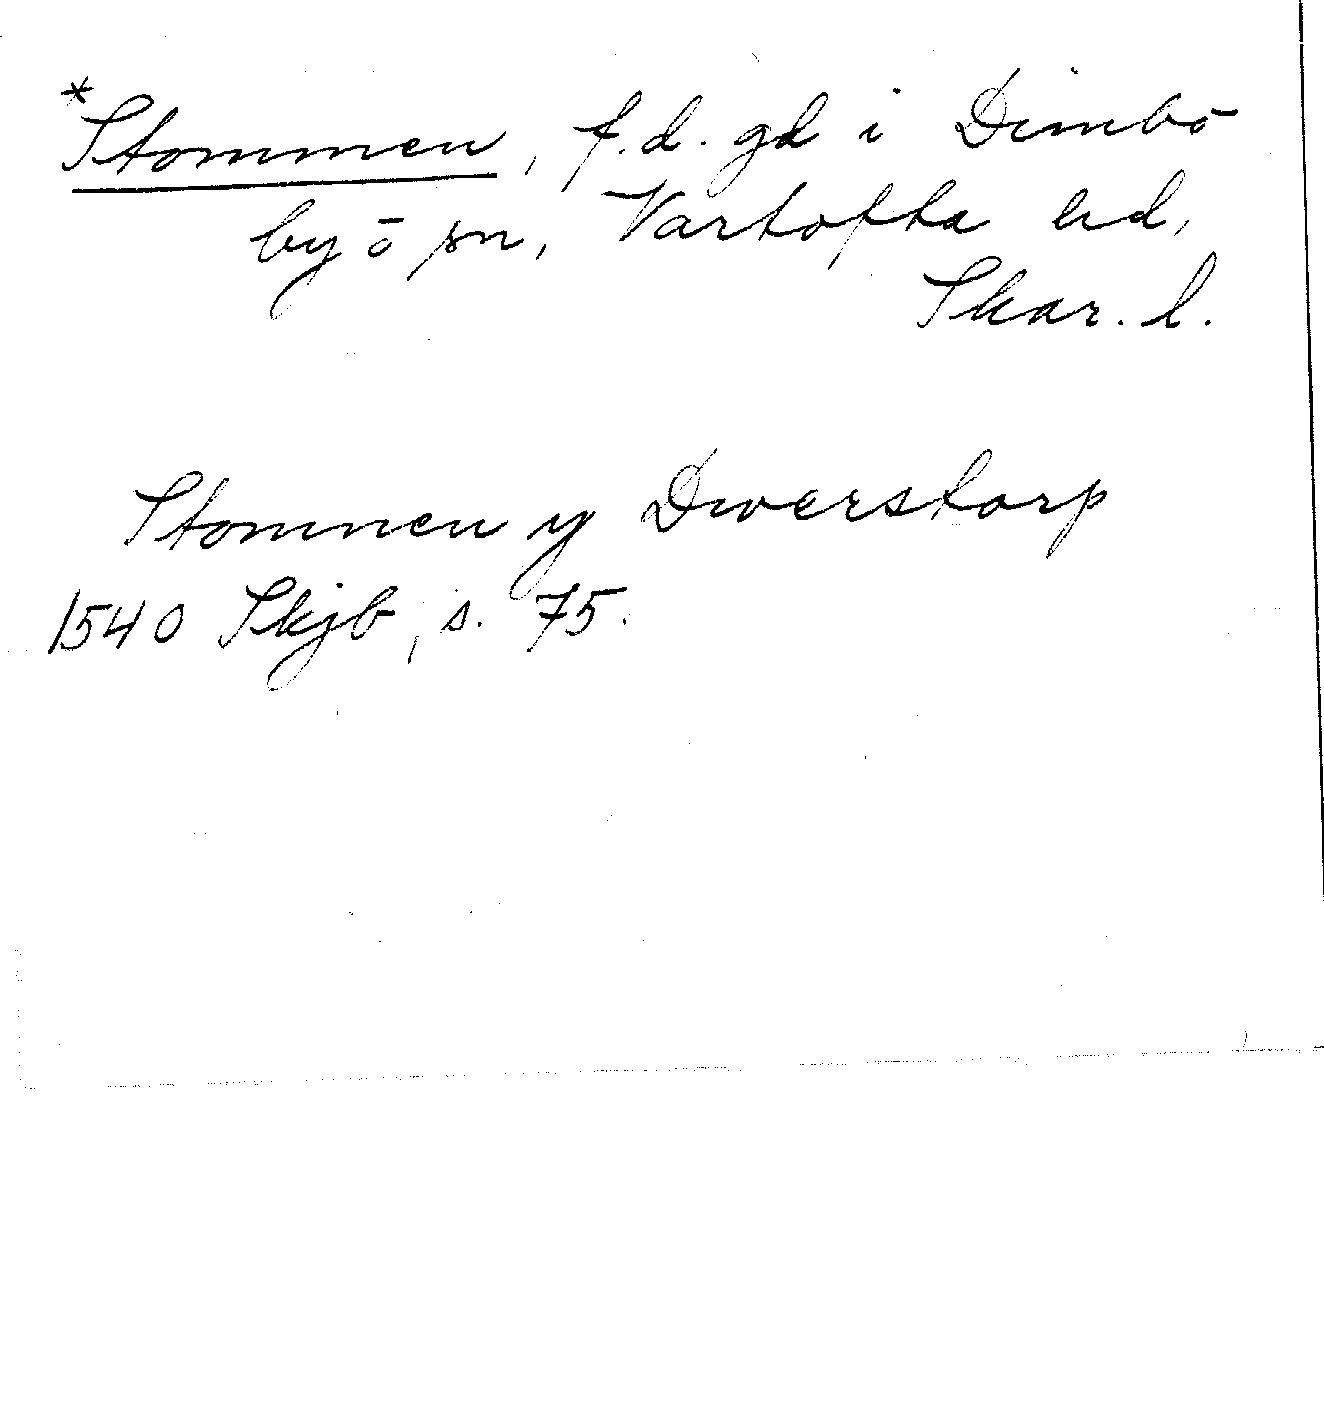 *Stommen, f.d. gd i Dimbo
by o sn, Vartofta hd,
Skar. l.
Stomnen y Dwerstorp
1540 Skjb, s. 75.